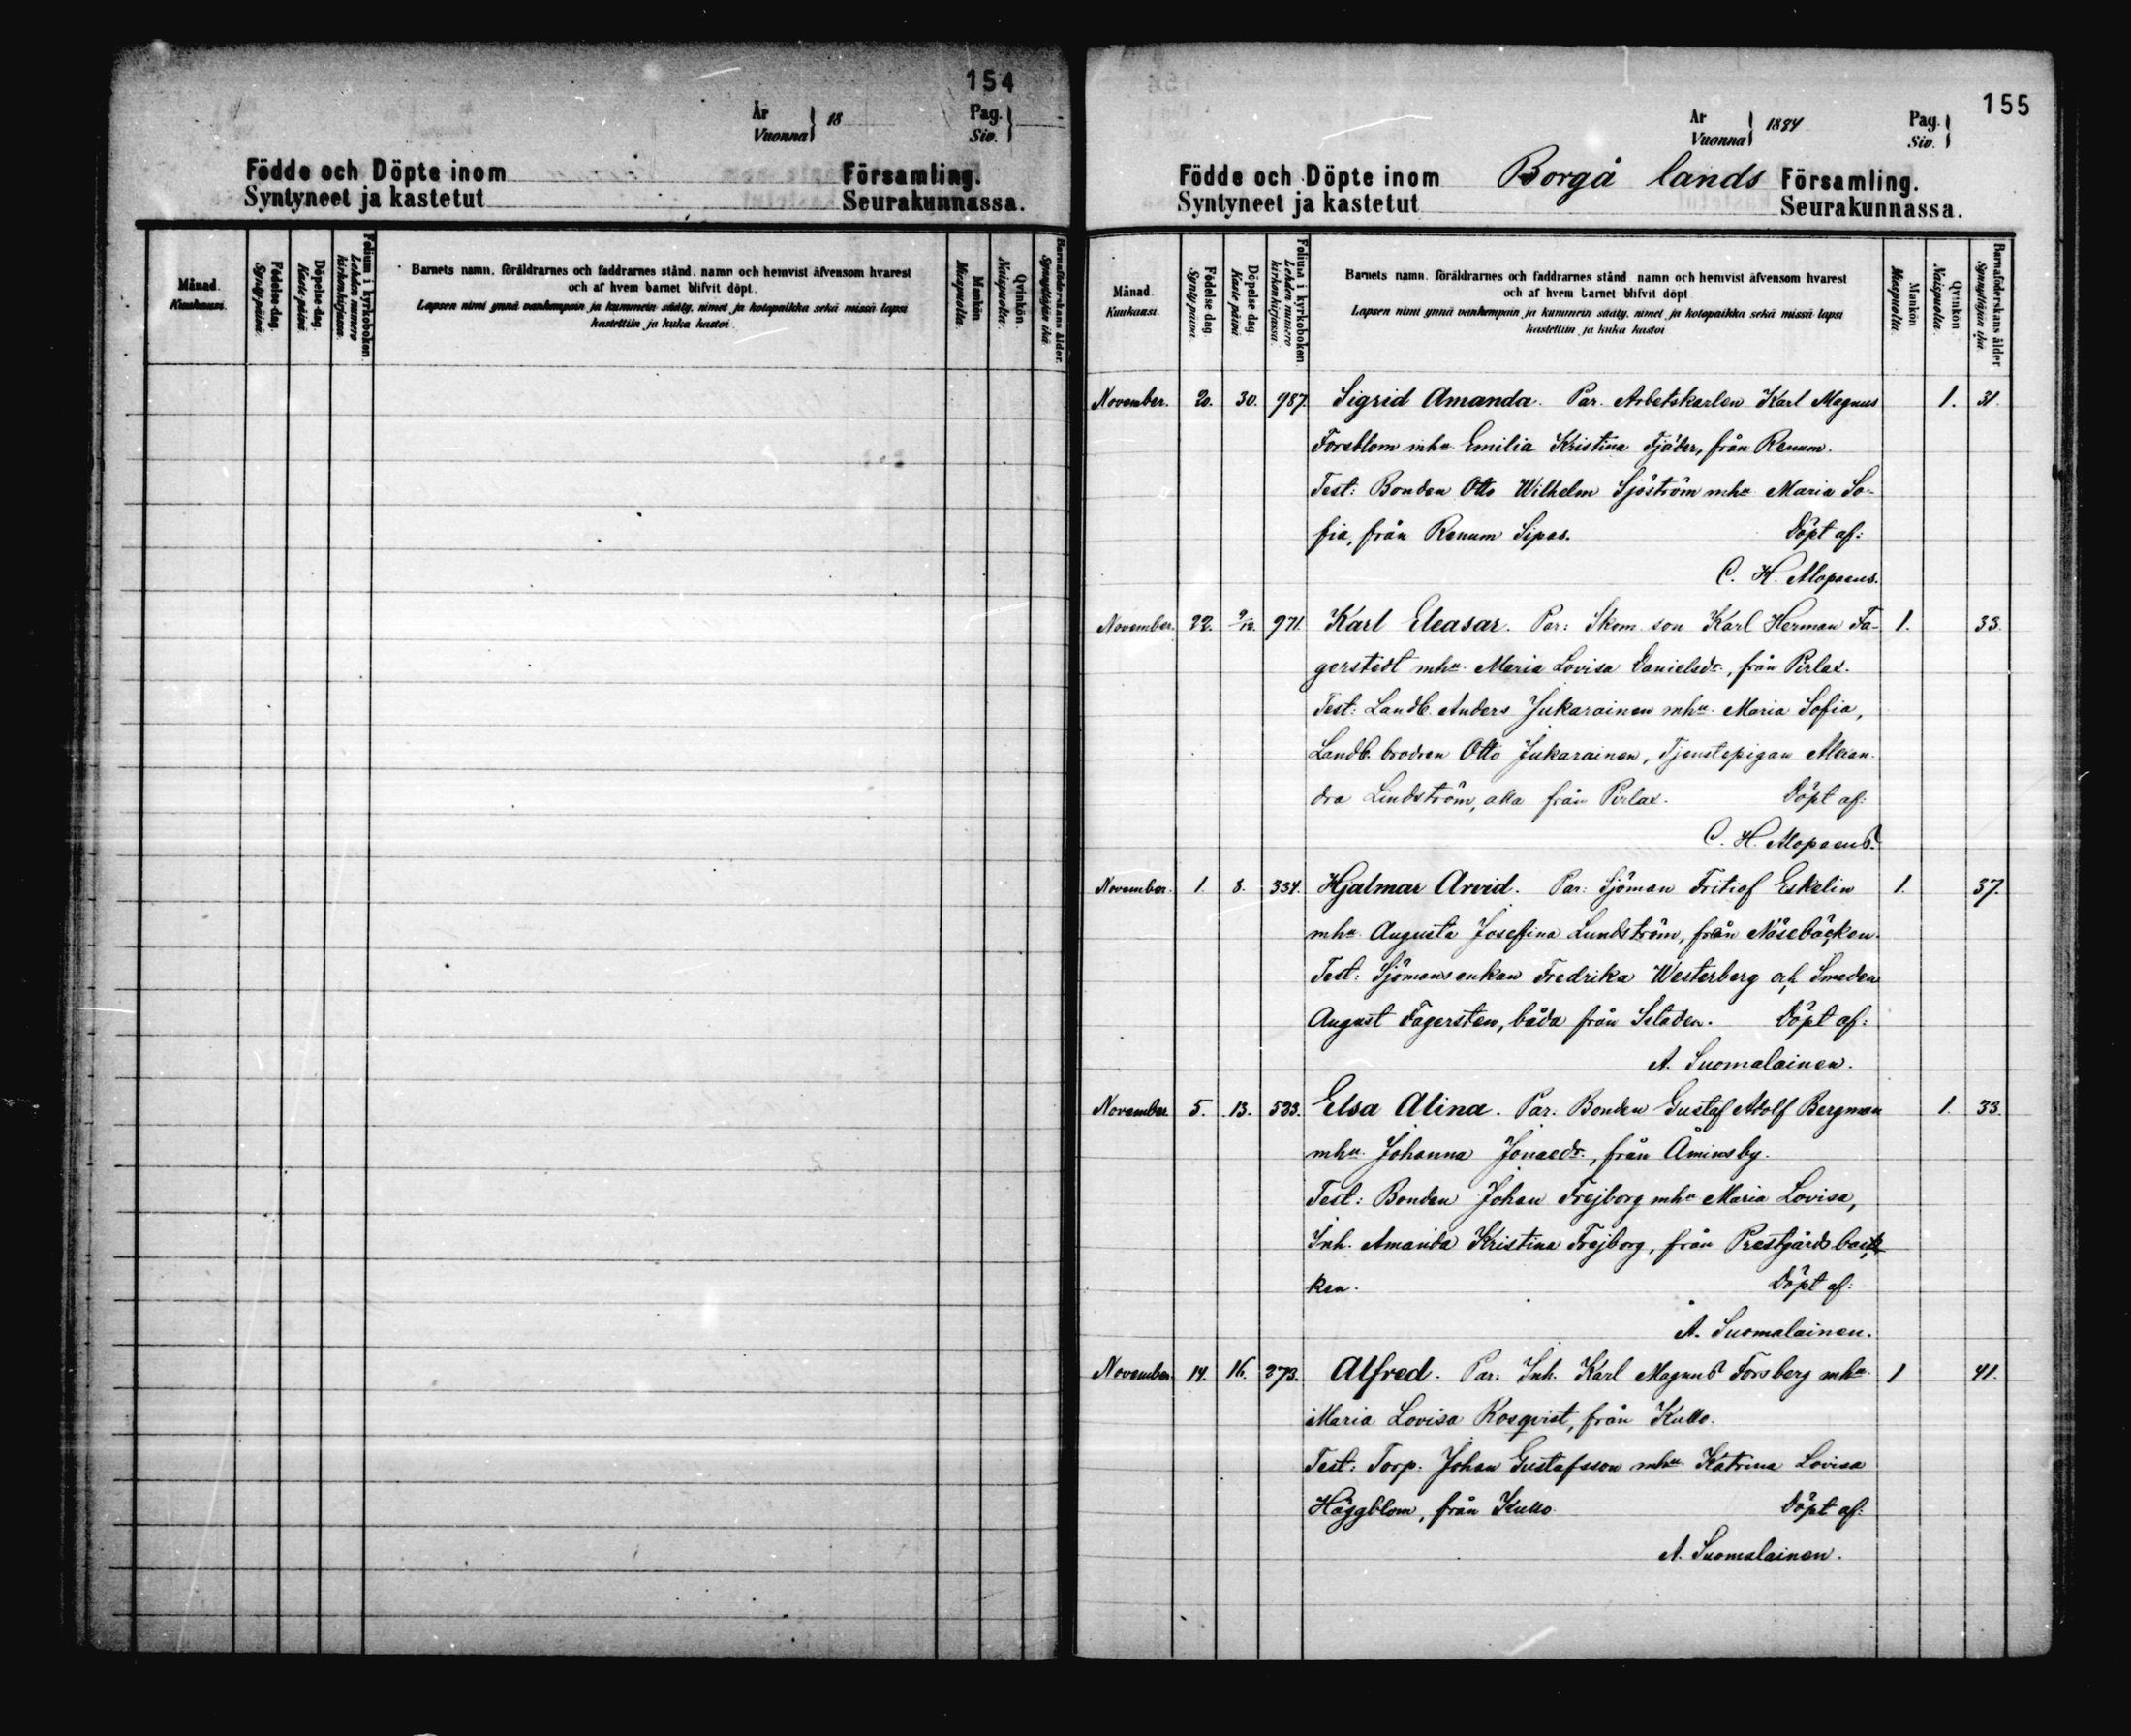 154
År
Vuonna } 18
Pag.
Siv.
Födde och Döpte inom Församling.
Syntyneet ja kastetut Seurakunnassa.
Månad.
Kuukausi.
Födelse-dag.
Synty-päivä
Döpelse-dag.
Kaste-päivä
Folium i kyrkoboken.
Lehden numero
kirkonkirjassa.
Barnets namn, föräldrarnes och faddrarnes stånd, namn och hemvist äfvensom hvarest
och af hvem barnet blifvit döpt.
Lapsen nimi ynnä vanhempain ja kummein sääty, nimet ja kotopaikka sekä missä lapsi
kastettiin ja kuka kastoi.
Mankön
Miespuolta.
Qvinkön.
Naispuolta.
Barnaföderskans ålder.
Synnyttäjän ikä.
155
År
Vuonna } 1884
Pag.
Siv.
Födde och Döpte inom Borgå lands Församling.
Syntyneet ja kastetut Seurakunnassa.
Månad.
Kuukausi.
Födelse dag.
Synty päivä.
Döpelse dag.
Kaste päivä
Folium i kyrkoboken.
Lehden numero
kirkonkirjassa.
Barnets namn, föräldrarnes och faddrarnes stånd, namn och hemvist äfvensom hvarest
och af hvem barnet blifvit döpt
Lapsen nimi ynnä vanhempain ja kummein sääty, nimet ja kotopaikka sekä missä lapsi
kastettiin ja kuka kastoi
Mankön
Miespuolta.
Qvinkön
Naispuolta.
Barnaföderskans ålder
Synnyttäjän ikä.
November. 20. 30. 987. Sigrid Amanda. Par. Arbetskarlen Karl Magnus 1. 31.
Forsblom mhu. Emilia Kristina Tjäder, från Renum.
Test: Bonden Otto Wilhelm Sjöström mhu Maria So-
fia, från Renum Sipas. Döpt af:
C. H. Alopaeus.
November. 22. 9/12. 971. Karl Eleasar. Par: Skom. son Karl Herman Fa- 1. 33.
gerstedt mhu. Maria Lovisa Danielsdr., från Pirlax.
Test: Landb. Anders Jukarainen mhu. Maria Sofia,
Landb. brodren Otto Jukarainen, Tjenstepigan Alexan-
dra Lindström, alla från Pirlax. Döpt af:
C. H. Alopaeus.
November. 1. 8. 334. Hjalmar Arvid. Par: Sjöman Fritiof Eskelin 1. 37.
mhu Augusta Josefina Lundström, från Näsebacken.
Test: Sjömansenkan Fredrika Westerberg och Smeden
August Fagersten, båda från Staden. Döpt af:
A. Suomalainen.
November 5. 13. 533. Elsa Alina. Par: Bonden Gustaf Adolf Bergman 1. 33.
mhu. Johanna Jonaedr., från Åminsby.
Test: Bonden Johan Frejborg mhu Maria Lovisa,
Inh. Amanda Kristina Frejborg, från Prestgårdsback
ken. Döpt af:
A. Suomalainen.
November. 14. 16. 273. Alfred. Par: Inh. Karl Magnus Forsberg mhu. 1 41.
Maria Lovisa Rosqvist, från Kullo.
Test: Torp. Johan Gustafsson mhu Katrina Lovisa
Häggblom, från Kullo Döpt af:
A. Suomalainen.